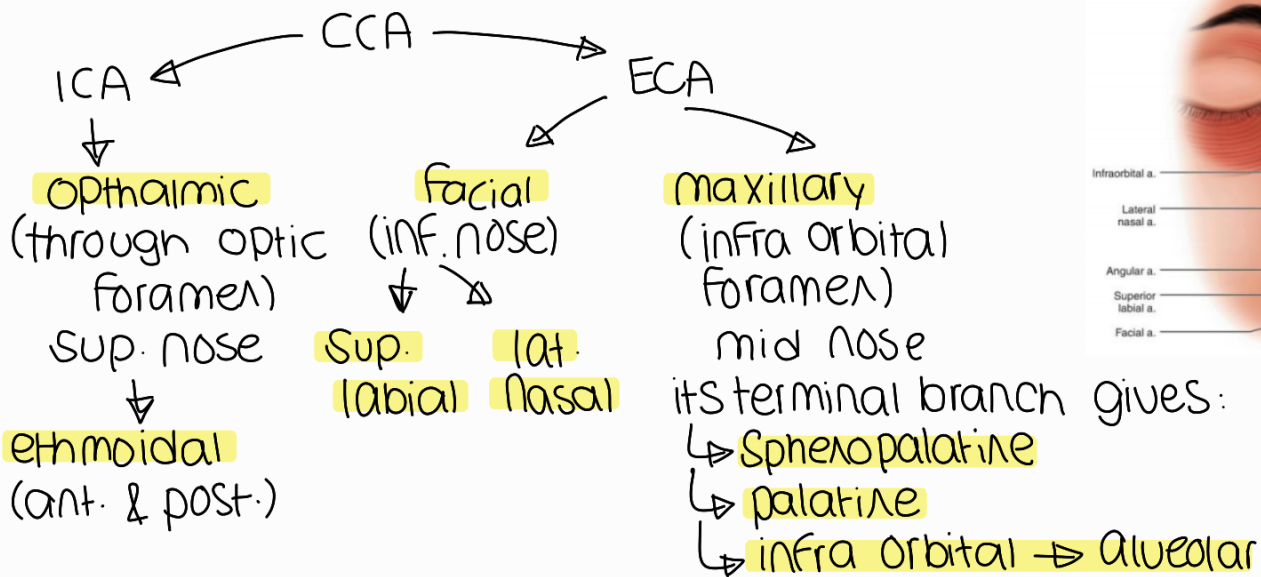 CCA
ICA
ECA
opthalmic
(through optic
foramen)
sup. nose
ethmoidal
(ant. & post.)
facial
(inf. nose)
sup.
labial
lat.
nasal
maxillary
(infra orbital
foramen)
mid nose
its terminal branch gives:
sphenopalatine
palatine
infra orbital → alveolar
Infraorbital a.
Lateral
nasal a.
Angular a.
Superior
labial a.
Facial a.